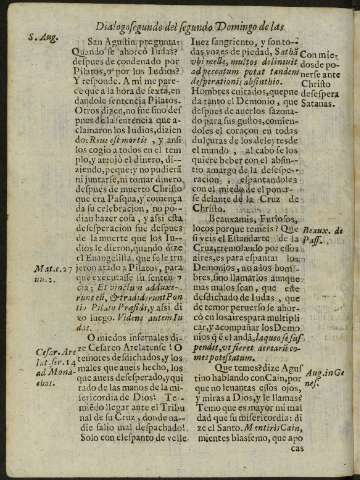 Dialogo segundo del segundo Domingo de las
S. Aug.
San Agustin pregunta:
Quando se ahorcò Iudas?
despues de condenado por
Pilatos, o por los Iudios?
Y responde. A mi me pare-
ce que a la hora de sexta, en
dandole sentencia Pilatos.
Otros dizen, no fue sino des
pues de la sentencia que a-
clamaron los Iudios, dizien
do: Reus est mortis, y ansi
los cogio a todos en el tem
plo, y arrojò el dinero, di-
ziendo, pequè: y no pudiera
ni juntarse, ni tomar dinero,
despues de muerto Christo
que era Pasqua, y comença
da su celebracion, no po-
dian hazer cosa, y assi esta
desesperacion fue despues
de la muerte que los Iu-
dios le dieron, quando dize
el Euangelista, que se le tru
jeron atado a Pilatos, para
que executasse su senten-
cia; Et vinctum adduxe-
runt eum, & tradiderunt Pon
tio Pilato Præsidi, y assi di
xo luego. Videns autem Iu
das.
Mat. c. 27
nu. 2.
O miedos infernales di-
ze Cesareo Arelatense! O
temores desdichados, y los
males que aueis hecho, los
que aueis desesperado, y qui
tado de las manos de la mi-
sericordia de Dios! Te-
miēdo llegar ante el Tribu
nal de su Cruz, donde na-
die salio mal despachado!
Solo con el espanto de velle
Cesar. Are
lat. ser. 14
ad Mona-
chos.
Iuez sangriento, y sonto-
das, vozes de piedad, Sathā
vbi melle, multos delinuit
ad peccatum potat tandem
desperationis absinthio.
Hombres cuitados, que pue
da tanto el Demonio, que
despues de auerlos sazona-
do para sus gustos, comien-
doles el coraçon en todas
dulçuras de los deleytes de
el mundo, al cabo se los
quiere beber con el absin-
tio amargo de la desespe-
racion, espantandoles
con el miedo de el poner-
se delante de la Cruz de
Christo.
Con mie-
dos de po-
nerse ante
Christo
desespera
Satanas.
Beauxamis, Furiosos,
locos porque temeis? Que
si veis el Estandarte de la
Cruz tremolando por esses
aires, es para espantar los
Demonios, no a los hom-
bres, sino llamarlos aunque
mas malos sean, que este
desdichado de Iudas, que
de temor peruerso se ahor-
cò en los aires para multipli
car, y acompañar los Demo
nios q̄ è el andā, laqueo se sus
pendit, vt fieret aereæ co-
mes potestatum.
Beaux. de
Pass.
Que temes? dize Agus
tino hablando con Cain, por
que no leuantas essos ojos,
y miras a Dios, y le llamas?
Temo que es mayor mi mal
dad que su misericordia: di
ze el Santo. Mentiris Cain,
mientes blasfemo, que apo
Aug. in Ge
nes.
cas